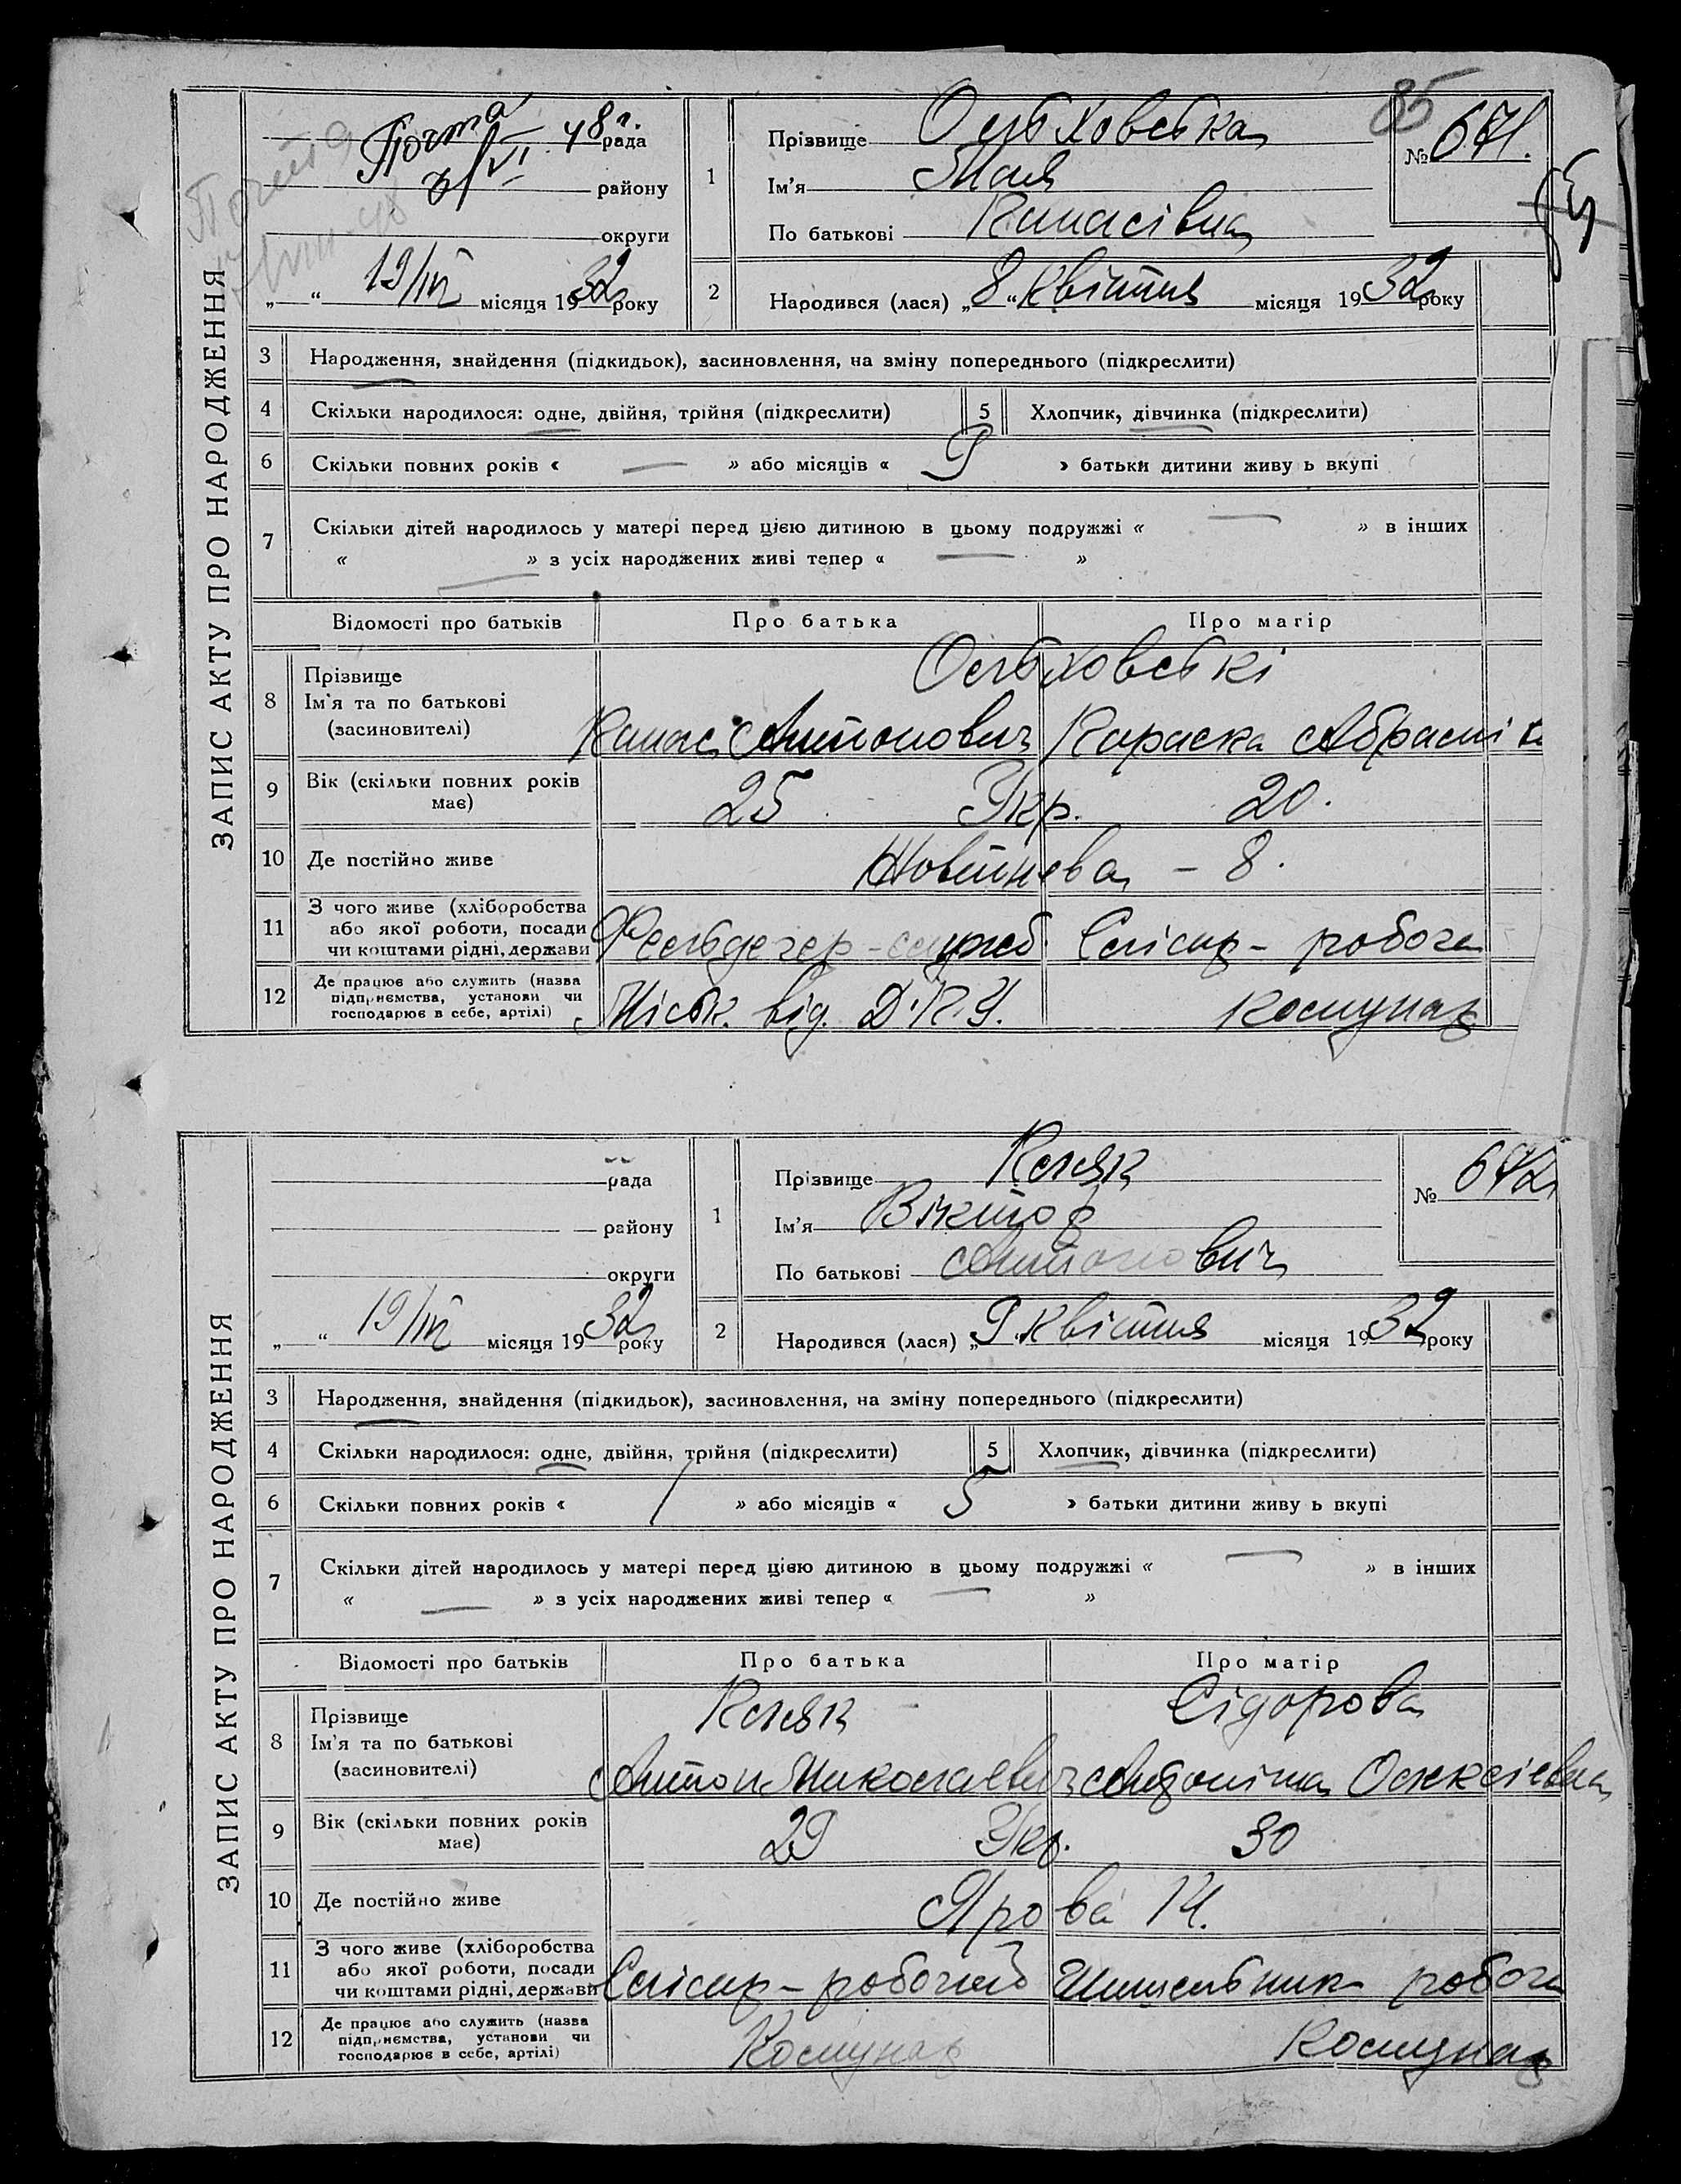 ЗАПИС АКТУ ПРО НАРОДЖЕННЯ
Почта
48 г. рада
району
округи
„ “ 19/IV місяця 1932 року
1
Прізвище Ольховська
Ім'я Мая
По батькові Панасівна
85
№ 671.
2
Народився (лася) „8“ квітня місяця 1932 року
3 Народження, знайдення (підкидьок), засиновлення, на зміну попереднього (підкреслити)
4 Скільки народилося: одне, двійня, трійня (підкреслити) 5 Хлопчик, дівчинка (підкреслити)
6 Скільки повних років « — » або місяців « 9 » батьки дитини живу ь вкупі
7 Скільки дітей народилось у матері перед цією дитиною в цьому подружжі « — » в інших
« — » з усіх народжених живі тепер « — »
Відомості про батьків Про батька Про матір
8 Прізвище
Ім'я та по батькові
(засиновителі)
Ольховські
Панас Антонович Параска Абрамів
9 Вік (скільки повних років має) 25 Укр. 20.
10 Де постійно живе Жовтнева – 8.
11 З чого живе (хліборобства
або якої роботи, посади
чи коштами рідні, держави
Фельдчер – служб. Слісар – робоча
12 Де працює або служить (назва
підприємства, установи чи
господарює в себе, артілі)
Міськ. від. Д.П.У. Комунар
ЗАПИС АКТУ ПРО НАРОДЖЕННЯ
рада
району
округи
„ “ 19/IV місяця 1932 року
1
Прізвище Кляк
Ім'я Віктор
По батькові Антонович
№ 672
2
Народився (лася) „9. квітня місяця 1932 року
3 Народження, знайдення (підкидьок), засиновлення, на зміну попереднього (підкреслити)
4 Скільки народилося: одне, двійня, трійня (підкреслити) 5 Хлопчик, дівчинка (підкреслити)
6 Скільки повних років « / » або місяців « 5 » батьки дитини живу ь вкупі
7 Скільки дітей народилось у матері перед цією дитиною в цьому подружжі « — » в інших
« — » з усіх народжених живі тепер « — »
Відомості про батьків Про батька Про матір
8 Прізвище
Ім'я та по батькові
(засиновителі)
Кляк Сідорова
Антон Миколаевич Антоніна Олексіевна
9 Вік (скільки повних років має) 29 Укр. 30
10 Де постійно живе Ярова 14.
11 З чого живе (хліборобства
або якої роботи, посади
чи коштами рідні, держави
Слісар – робочий Шишельниця робоча
12 Де працює або служить (назва
підприємства, установи чи
господарює в себе, артілі)
Комунар Комунар